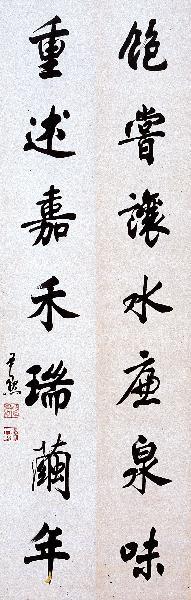 飽嘗讓水廉泉味
重述嘉禾瑞繭年
尹默